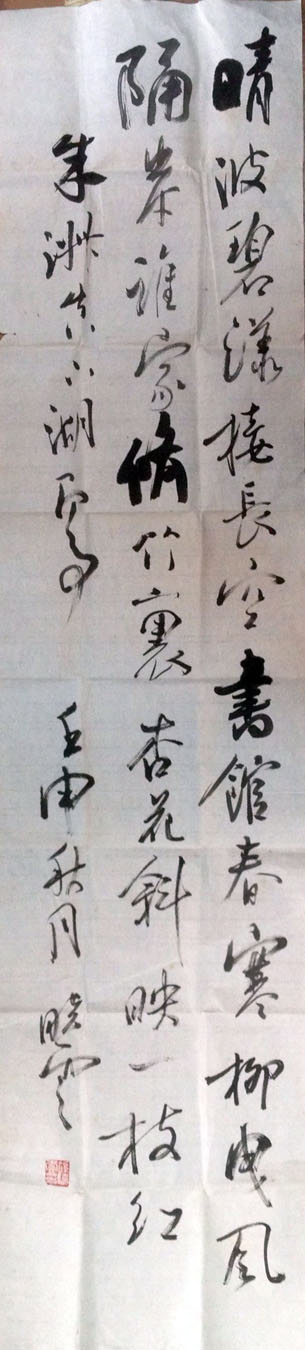 晴波碧漾接長空書館春寒柳曳風
隔岸誰家脩竹裏杏花斜映一枝紅
朱淑真下湖即事 壬申秋月 曉雲